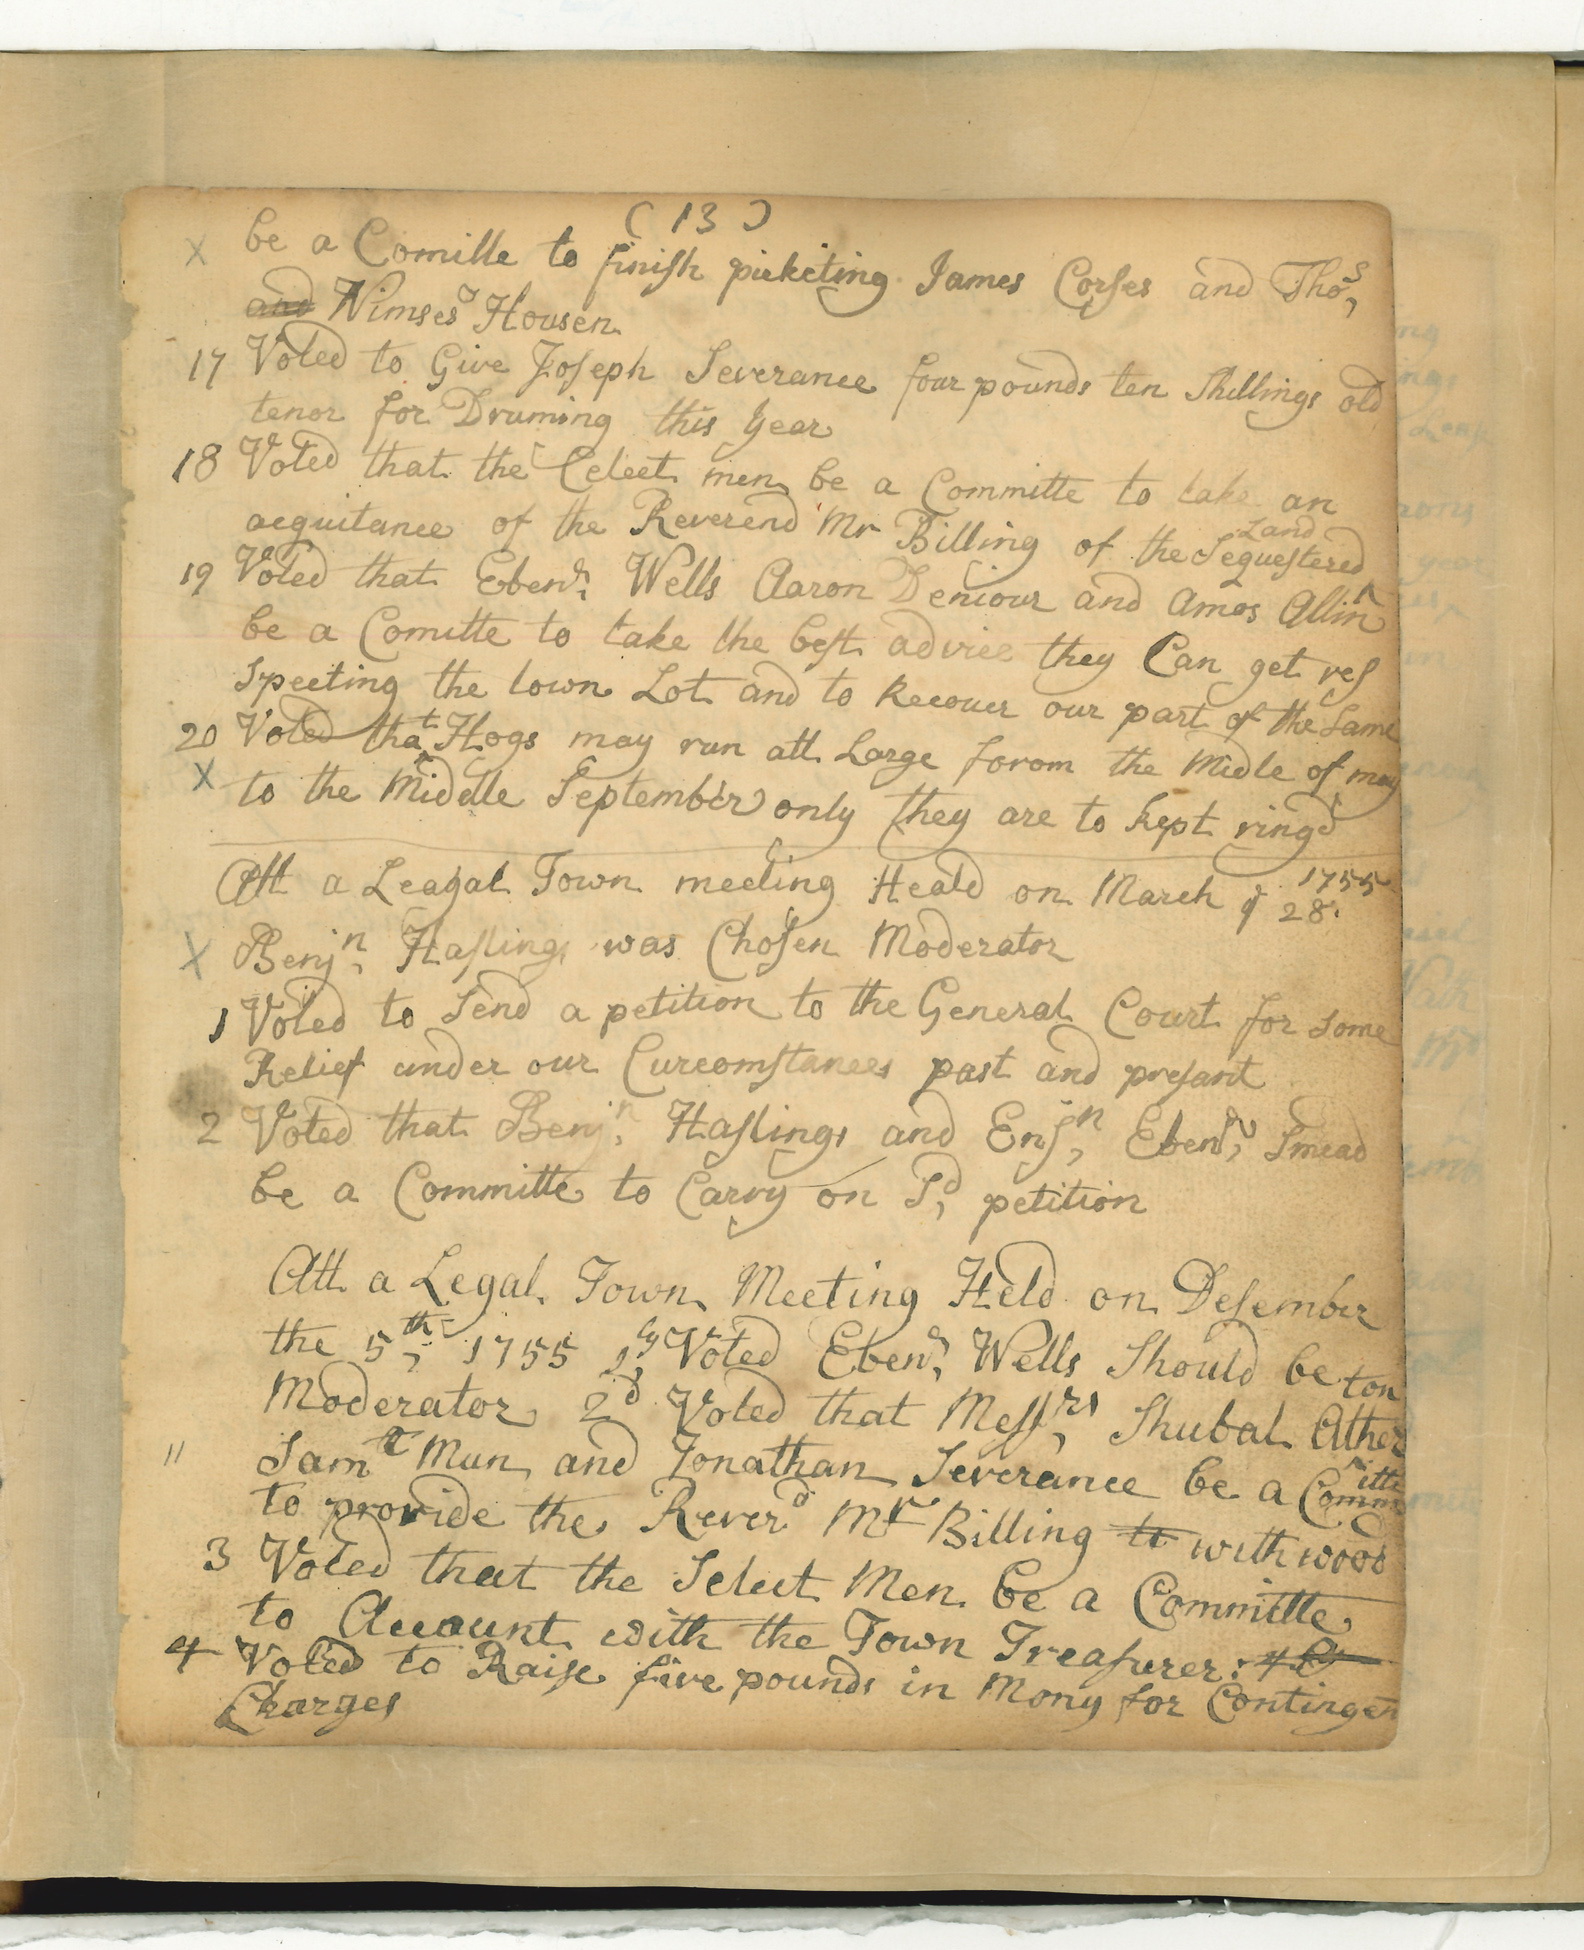 ( 13 )
X be a Comitte to finish picketing James Corses and Thos,
and Nimses Housen
17 Voted to Give Joseph Severance four pounds ten Shillings old
tenor for Druming this year
18 Voted that the Celect men be a Committe to take an
acquitance of the Reverend Mr Billing of the Sequestered Land
19 Voted that Ebenr, Wells Aaron Deniour and Amos Allin
be a Comitte to take the best advice they Can get res
specting the town Lot and to Recover our part of the Same
20 Voted that Hogs may run att Large forom the Midle of may
X to the Middle September only they are to kept ringd
Att a Leagal Town meeting Heald on March ye 28 1755
X Benjn, Hastings was Chosen Moderator
1 Voted to Send a petition to the General Court for Some
Relief under our Curcomstances past and presant
2 Voted that Benjn, Hastings and Ensn, Ebenr, Smead
be a Committe to Carry on Sd, petition
Att a Legal Town Meeting Held on Desember
the 5th, 1755 1ly Voted Ebenr, Wells Should be
Moderator 2d Voted that Messrs, Shubal Atherton
" Samll Mun and Jonathan Severance be a Committe
to provide the Reverd Mr Billing to with wood
3 Voted that the Select Men be a Committe
to Account with the Town Treasurer.
4 Voted to Raise five pounds in Mony for Contingen
Charges